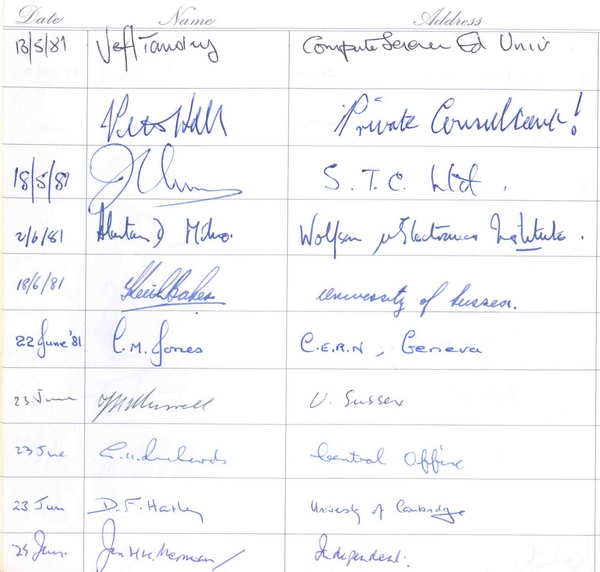 Date Name Address
13/5/81 Jeff Tansley Computer Science Ed Univ
Peter Hall Private Consultant!
18/5/81 S.T.C. Ltd.
2/6/81 Alastair D Milne. Wolfson μElectronics Institute.
18/6/81 Keith Baker University of Sussex.
22 June '81 C.M. Jones C.E.R.N, Geneva
23 June U. Sussex
23 Jne Central Office
23 Jun D.F. Hartley University of Cambridge
24 Jun. Independent.